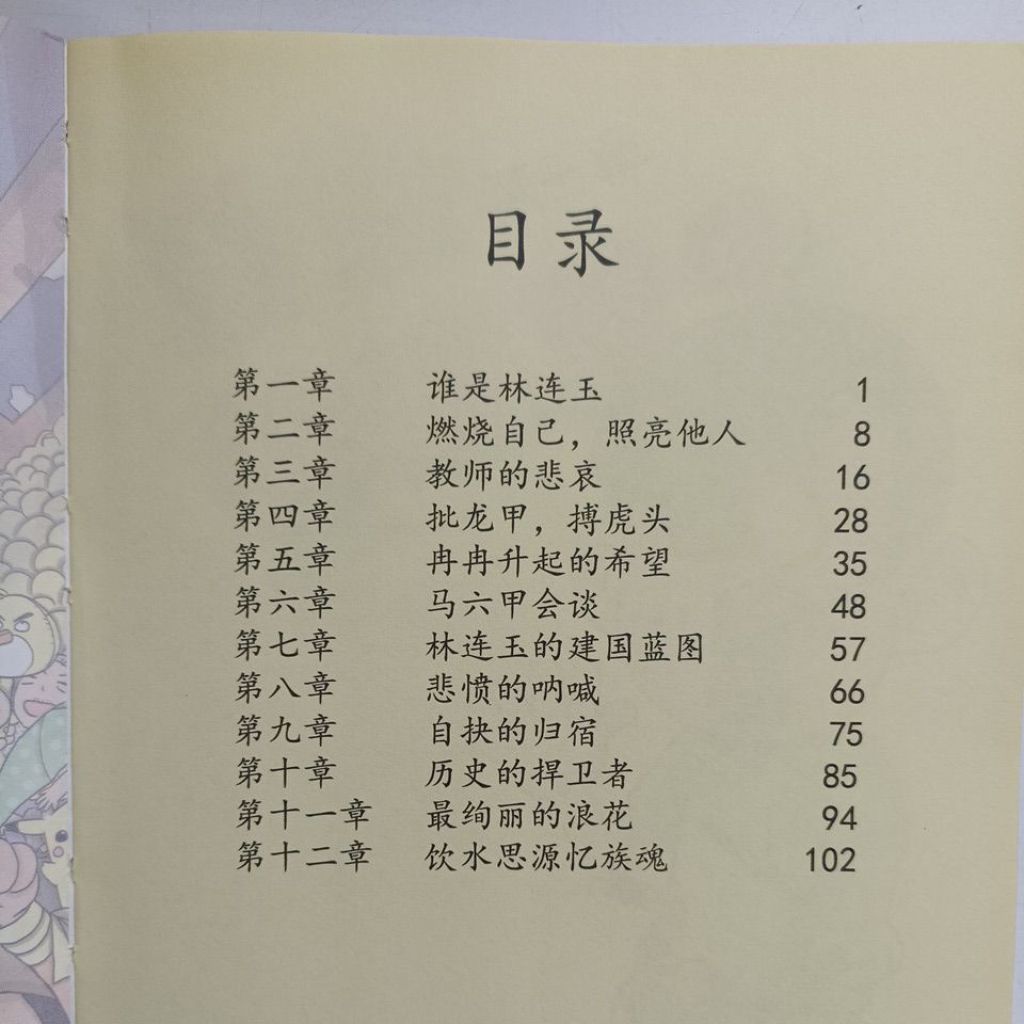 目录
第一章 谁是林连玉 1
第二章 燃烧自己，照亮他人 8
第三章 教师的悲哀 16
第四章 批龙甲，搏虎头 28
第五章 冉冉升起的希望 35
第六章 马六甲会谈 48
第七章 林连玉的建国蓝图 57
第八章 悲愤的呐喊 66
第九章 自抉的归宿 75
第十章 历史的捍卫者 85
第十一章 最绚丽的浪花 94
第十二章 饮水思源忆族魂 102